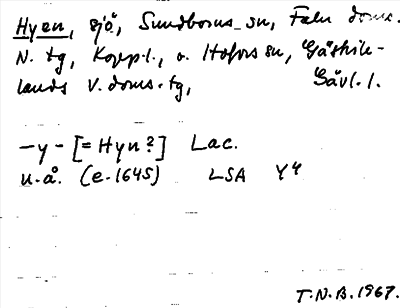 Hyen, sjö, Sundborns sn, Falu doms.
N. tg, Kopp.l., o. Hofors sn, Gästrik-
lands V. doms. tg, Gävl. l.
-y- [= Hyn?] Lac.
u.å. (e. 1645) LSA Y4
T.N.B. 1967.